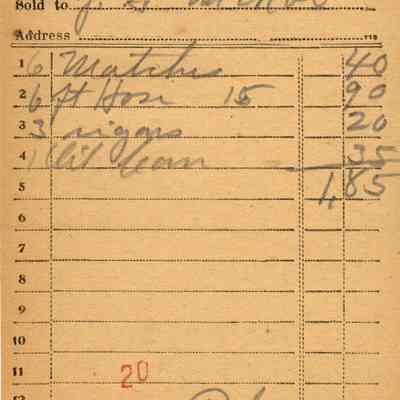 Sold to J.
Address
1 6 Matches 40
2 6 ft Hose 15 90
3 3 cigars 20
4 1 Oil Can 35
5 1,85
6
7
8
9
10
11 20
12